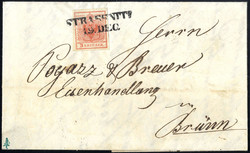 STRASSNITZ
19. DEC.
Herrn
Pogazz & Breuer
Eisenhandlung
in
Brünn